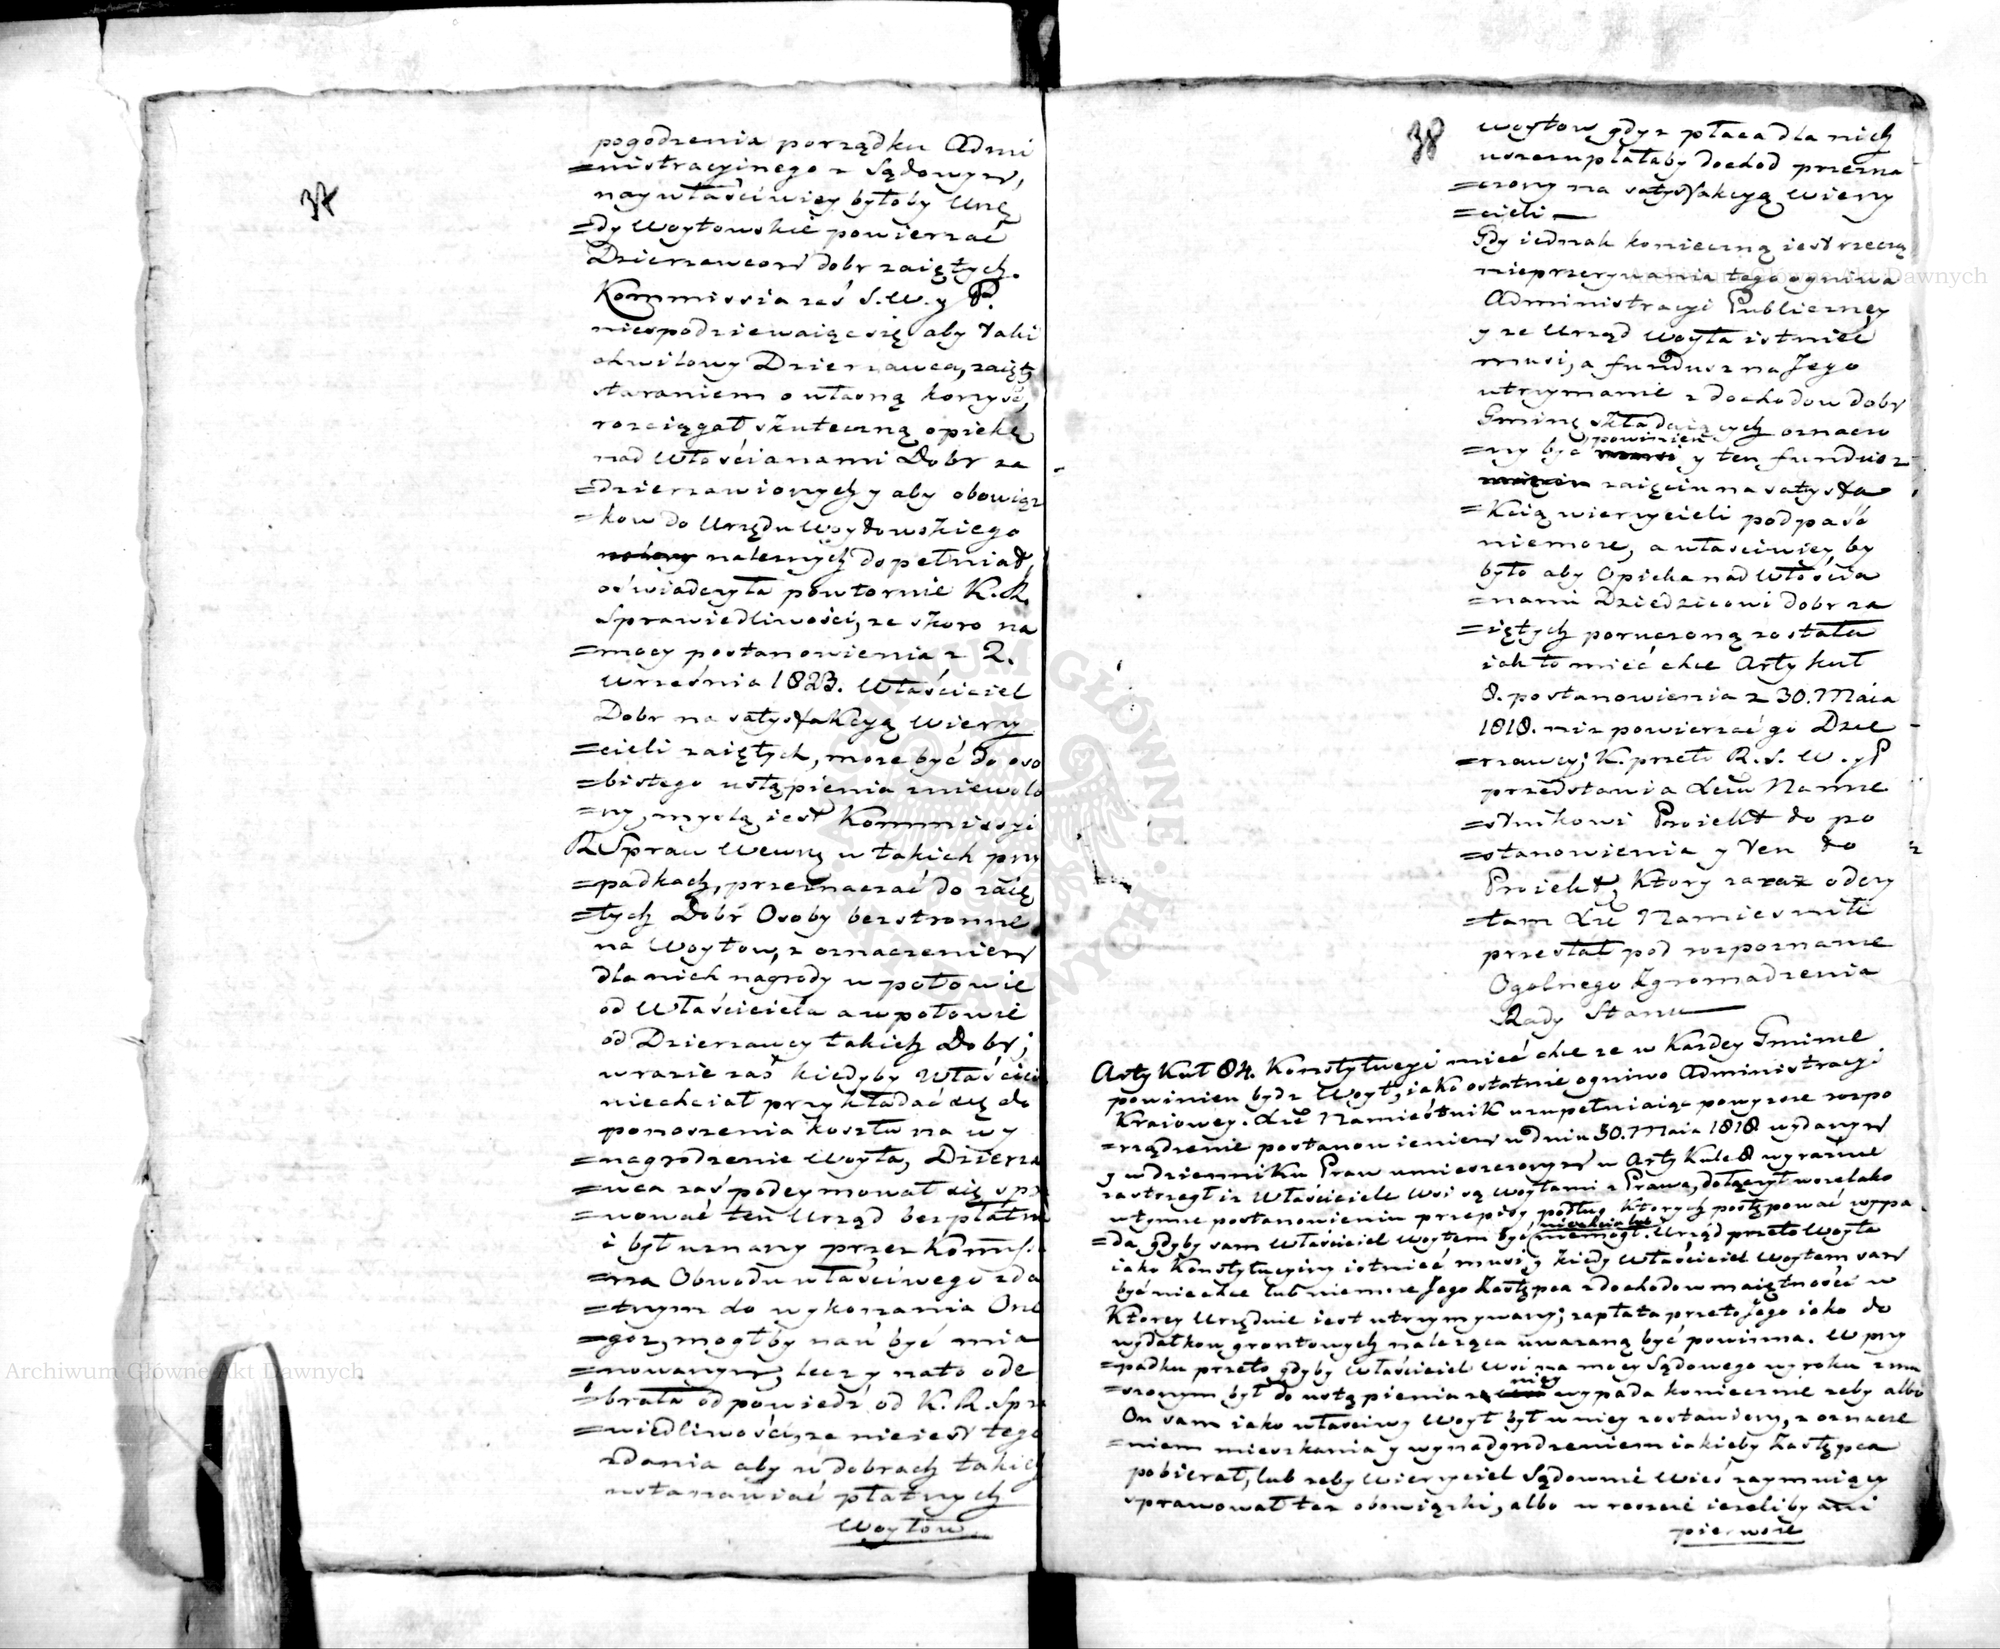 37
pogodzenia porządku Admi
=nistracyinego z Sądowym,
naywłaściwiey byłoby Urzę
=dy Woytowskie powierzać
Dzierzawcom dobr zaiętych.
Kommissia zaś S. W. y P.
niespodziewaiąc się aby taki
chwilowy Dzierzawca, zaięty
staraniem o własną korzyść,
rozciągał skuteczną opiekę
nad Włościanami Dobr za
=dzierzawionych y aby obowiąz
=kow do Urzędu Woytowskiego
należnych dopełniał,
oświadczyła powtornie K. R.
Sprawiedliwości, ze skoro na
=mocy postanowienia z 2.
Września 1823. Właściciel
Dobr na satysfakcyą Wierzy
=cieli zaiętych, moze być do oso
=bistego ustąpienia zniewolo
=ny, myslą iest Kommissyi
R Spraw Wewnę w takich przy
=padkach, przeznaczać do zaię
=tych Dobr Osoby bezstronne
na Woytow, z oznaczeniem
dla nich nagrody w połowie
od Właściciela a w połowie
od Dzierzawcy takich Dobr;
w razie zaś kiedyby Właściciel
niechciał przykładać się do
ponoszenia kosztu na wy
=nagrodzenie Woyta, Dzierza
=wca zaś podeymował się spra
=wować ten Urząd bezpłatnie
i był uznany przez Kommissa
=rza Obwodu właściwego zda
=tnym do wykonania One
=goz, mogłby nań być mia
=nowanym, lecz y na to ode
=brała odpowiedź od K. R. Spra
=wiedliwości, ze nieiest tego
zdania aby w dobrach takich
ustanawiać płatnych
Woytow
38
Woytow gdyz płaca dla nich
uszczuplałaby dochod przezna
=czony na satysfakcyą Wierzy
=cieli —
Gdy iednak konieczną iest rzeczą
nieprzerywania tego ogniwa
Administracyi Publiczney
y ze Urząd Woyta istnieć
musi, a fundusz na Jego
utrzymanie z dochodow dobr
Gminę składaiących oznaczo
powinien
=ny być musi y ten fundusz
zaięciu na satysfa
=kcią wierzycieli podpaść
niemoze, a właściwiey by
było aby Opieka nad Włościa
=nami Dziedzicowi dobr za
=iętych poruczoną została
iak to mieć chce Artykuł
8. postanowienia z 30. Maia
1818. niz powierzać go Dzie
=rzawcy; K. przeto R. S. W. y P
przedstawia Xciu Namie
=stnikowi Proiekt do po
=stanowienia y ten to
Proiekt, ktory zaraz odczy
=tam Xze Namiestnik
przesłał pod rozpoznanie
Ogolnego Zgromadzenia
Rady Stanu —
Artykuł 84. Konstytucyi mieć chce ze w Kazdey Gminie
powinien bydz Woyt, iako ostatnie ogniwo Administracyi
Kraiowey. Xze Namiestnik uzupełniaiąc powyzsze rozpo
=rządzenie postanowieniem w dniu 30. Maia 1818 wydanym
y w dzienniku Praw umieszczonym w Artykule 8 wyraznie
zastrzegł iz Właściciele Wsi są Woytami z Prawa, dołączył wszelako
w tymze postanowieniu przepisy podług ktorych postępować wypa
niechciał lub
=da gdyby sam Właściciel Woytem być niemogł. Urząd przeto Woyta
iako Konstytucyiny istnieć musi, y kiedy Właściciel Woytem sam
być niechce lub niemoze Jego Zastępca z dochodow maiętności w
Ktorey Urzęduie iest utrzymywany; zapłata przeto Jego iako do
wydatkow gruntowych naleząca uwazaną być powinna. W przy
=padku przeto gdyby Właściciel Wsi na mocy Sądowego wyroku zmu
niey
=szonym był do ustąpienia z wypada koniecznie zeby albo
On sam iako właściwy Woyt był w niey zostawiony, z oznacze
=niem mieszkania y wynadgrodzeniem iakieby Zastępca
pobierał, lub zeby Wierzyciel Sądownie Wieś zaymuiący
sprawował tez obowiązki, albo w reszcie iezeliby ani
pierwsze
Archiwum Główne Akt Dawnych
Archiwum Główne Akt Dawnych
ARCHIWUM GŁÓWNE AKT DAWNYCH